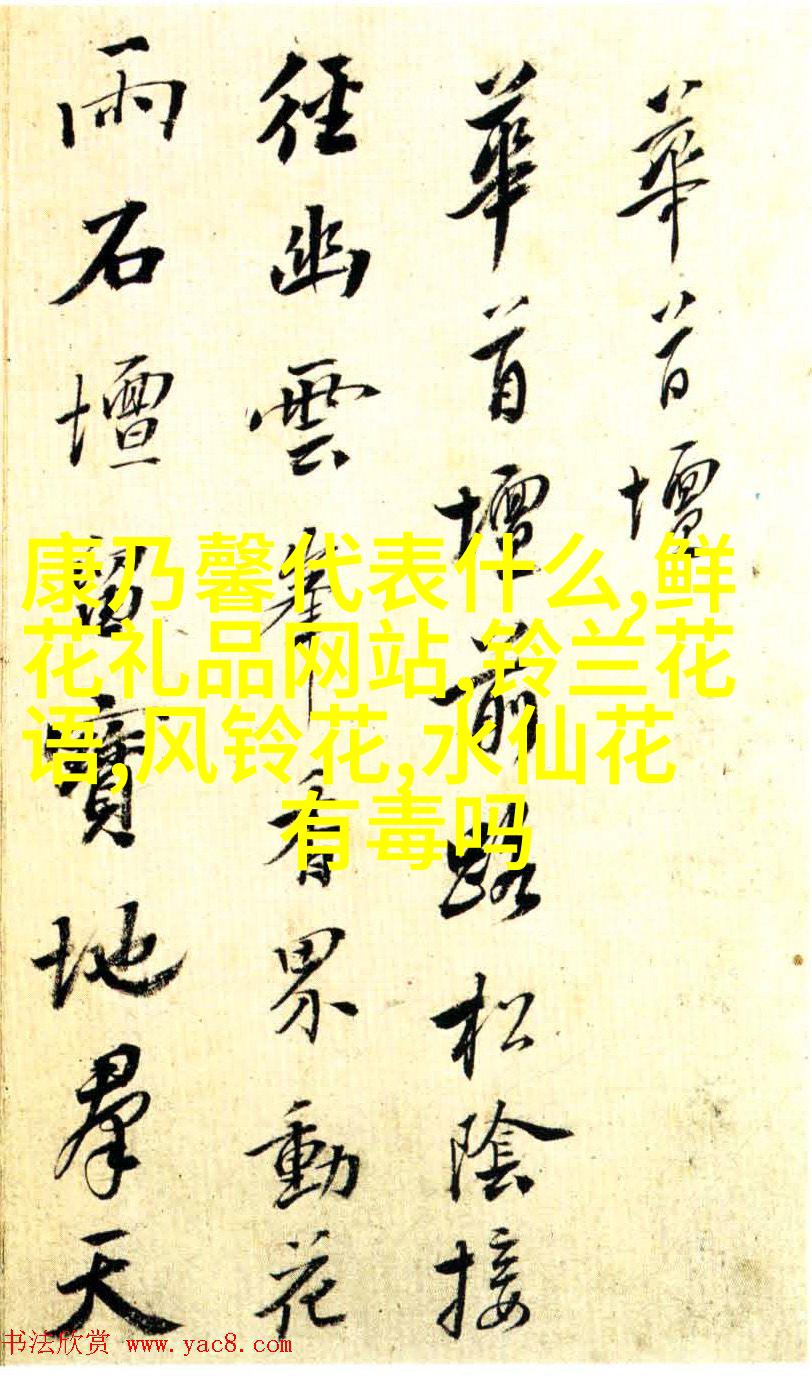 華首壇
華首壇前路松陰接
徑幽雲峯香界動花
雨石壇留寶地羣天
康乃馨代表什么,鲜
花礼品网站,铃兰花
语,风铃花,水仙花
有毒吗
书法欣赏 www.yac8.com